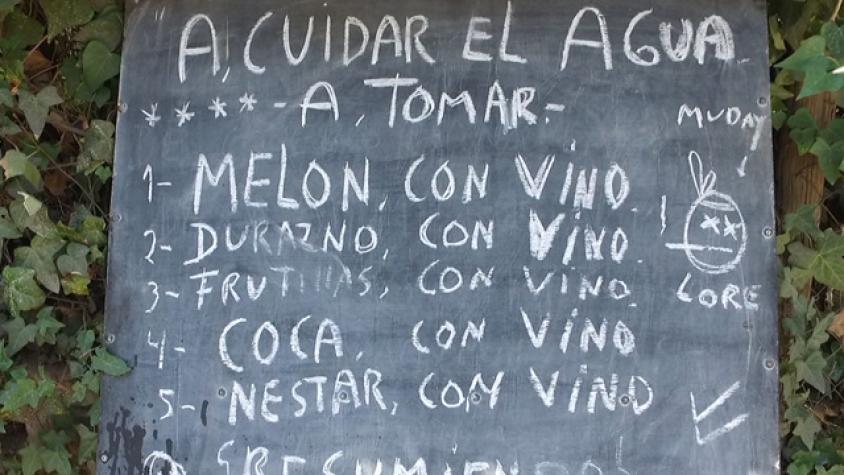 "A, CUIDAR EL AGUA
****-A, TOMAR-
MUDAY
1- MELON, CON VINO.
2- DURAZNO, CON VINO.
3- FRUTILLAS, CON VINO.
LORE
4- COCA, CON VINO
5- NESTAR, CON VINO